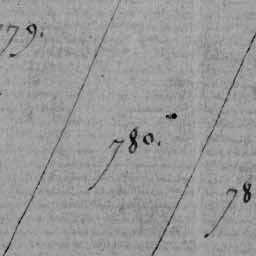 779.
780.
78